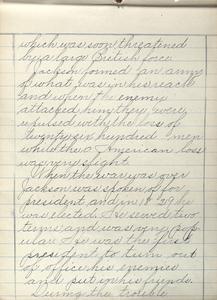 which was soon threatened
by a large British force
Jackson formed an army
of what was in his reach
and when the enemy
attacked him they were
repulsed with the loss of
twenty six hundred men
while the American loss
was very slight.
When the war was over
Jackson was spoken of for
president and in 1829 he
was elected. He served two
terms and was very pop-
ular. He was the first
president to turn out
of office his enemies
and put in his friends.
During the trouble